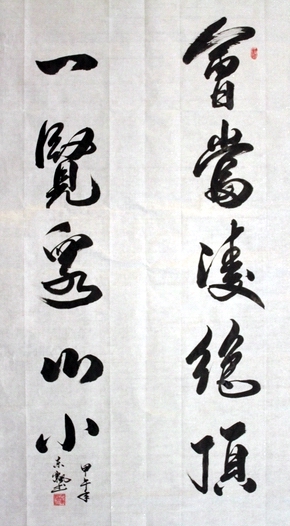 會當凌絕頂
一覽眾山小
甲午年